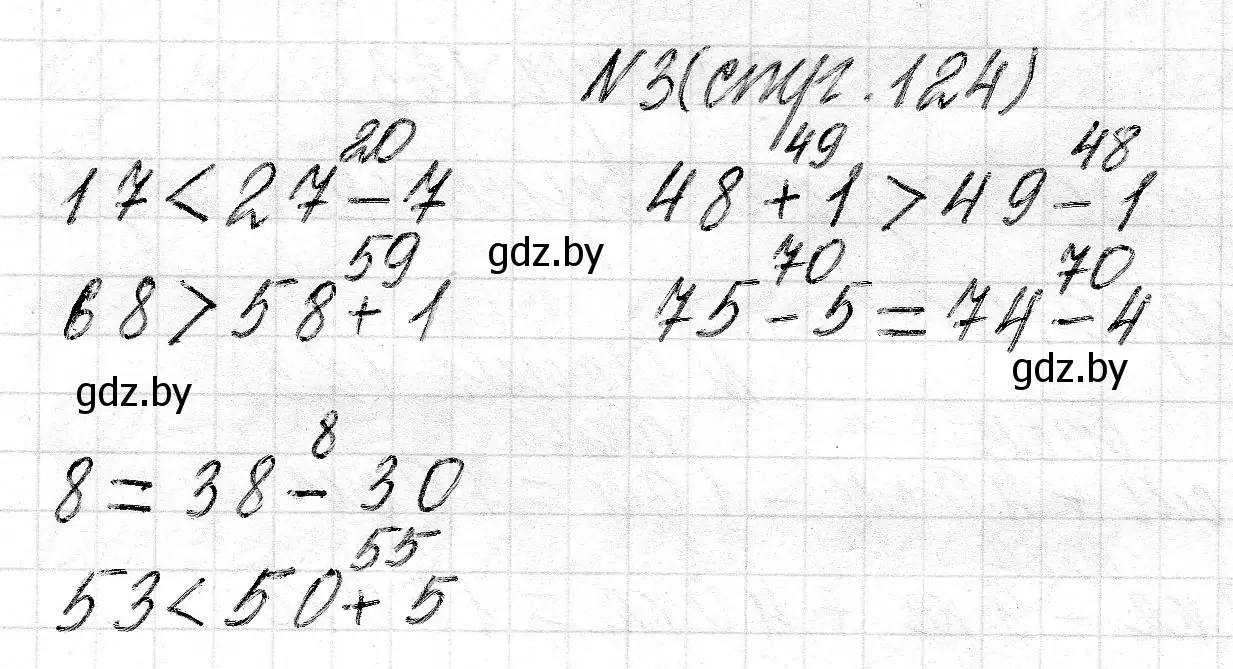 N 3 (стр. 124)
20
17 < 27 - 7
49 48
48 + 1 > 49 - 1
59
68 > 58 + 1
gdz.by
70 70
75 - 5 = 74 - 4
gdz.by
gdz.by
8
8 = 38 - 30
55
53 < 50 + 5